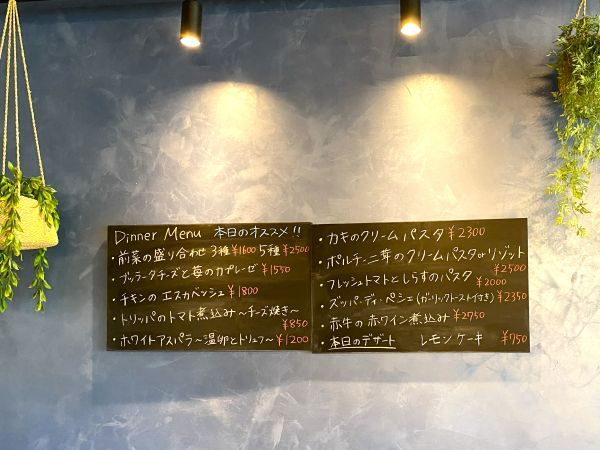 Dinner Menu 本日のオススメ!!
・前菜の盛り合わせ 3種¥1600 5種¥2500
・ブッラータチーズと苺のカプレーゼ ¥1550
・チキンのエスカベッシュ ¥1800
・トリッパのトマト煮込み〜チーズ焼き〜
¥850
・ホワイトアスパラ〜温卵とトリュフ〜¥1200
・カキのクリームパスタ ¥2300
・ポルチーニ茸のクリームパスタorリゾット
¥2500
・フレッシュトマトとしらすのパスタ
¥2000
・ズッパ・ディ・ペシェ(ガーリックトースト付き)¥2350
・赤牛の赤ワイン煮込み ¥2750
・本日のデザート レモンケーキ ¥750